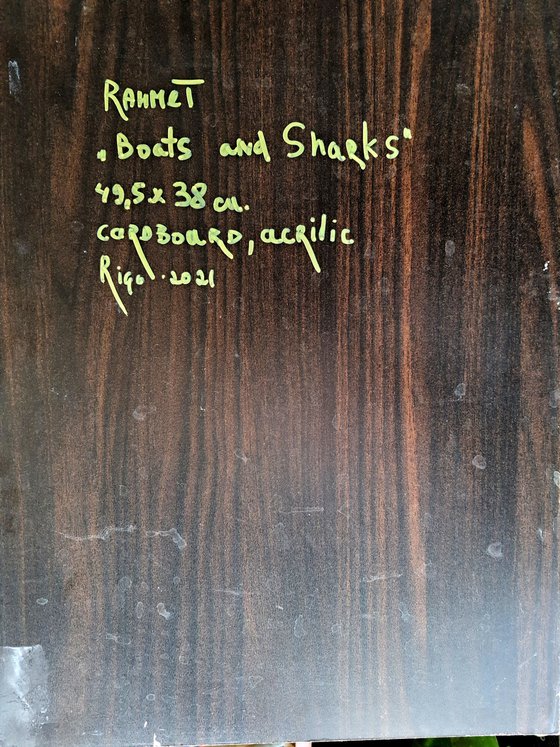 RAHMET
„Boats and Sharks"
49,5 x 38 см.
CARDBOARD, acrilic
Riga. 2021